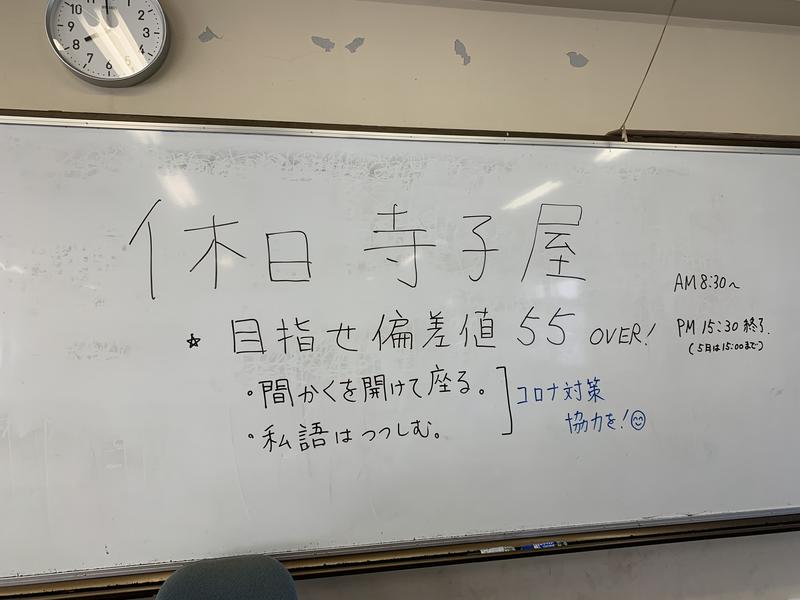 休日 寺子屋
AM 8:30〜
☆ 目指せ偏差値 55 OVER!
PM 15:30 終了.
(5月は15:00まで)
・間かくを開けて座る。
・私語はつつしむ。
コロナ対策
協力を!☺
10
2
9
3
8
4
7
6
5